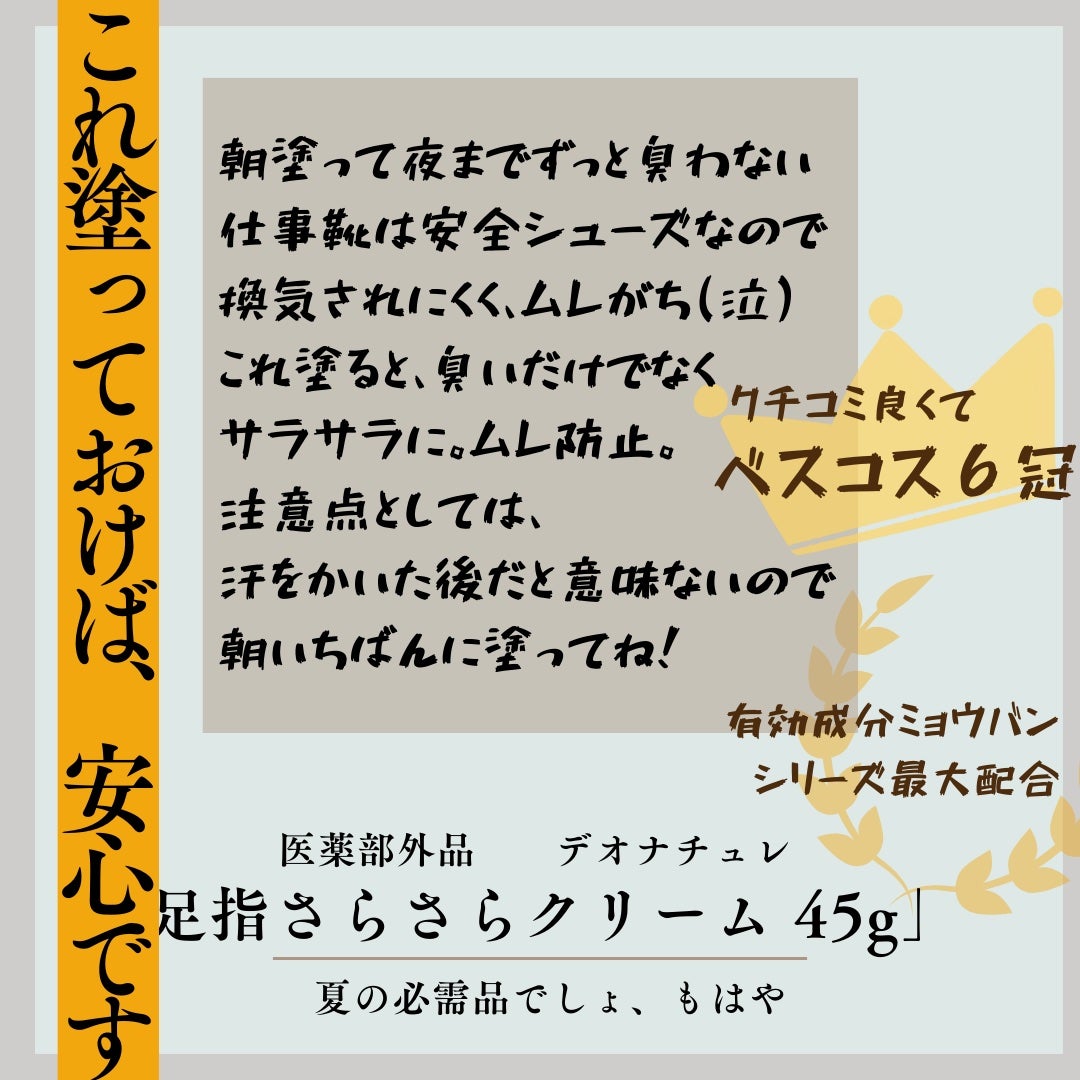 これ塗っておけば、安心です
朝塗って夜までずっと臭わない
仕事靴は安全シューズなので
換気されにくく、ムレがち(泣)
これ塗ると、臭いだけでなく
サラサラに。ムレ防止。
注意点としては、
汗をかいた後だと意味ないので
朝いちばんに塗ってね!
クチコミ良くて
ベスコス6冠
有効成分ミョウバン
シリーズ最大配合
医薬部外品 デオナチュレ
足指さらさらクリーム 45g」
夏の必需品でしょ、もはや